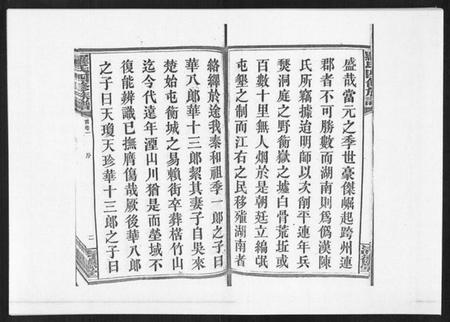 盛哉當元之季世豪傑崛起跨州連
郡者不可勝數而湖南則為偽漢陳
氏所竊據迨明師以次削平連年兵
燹洞庭之野衡嶽之墟白骨荒坵或
百數十里無人烟於是朝廷立編氓
屯墾之制而江右之民移殖湖南者
絡繹於途我泰和祖季一郎之子曰
華八郎華十三郎絜其妻子自吳來
楚始屯衡城之易賴街卒葬楮竹山
迄今代遠年湮山川猶是而塋域不
復能辨識已撫膺傷哉厥後華八郎
之子曰天瓊天珍華十三郎之子曰
四修族譜
首卷一
序
二